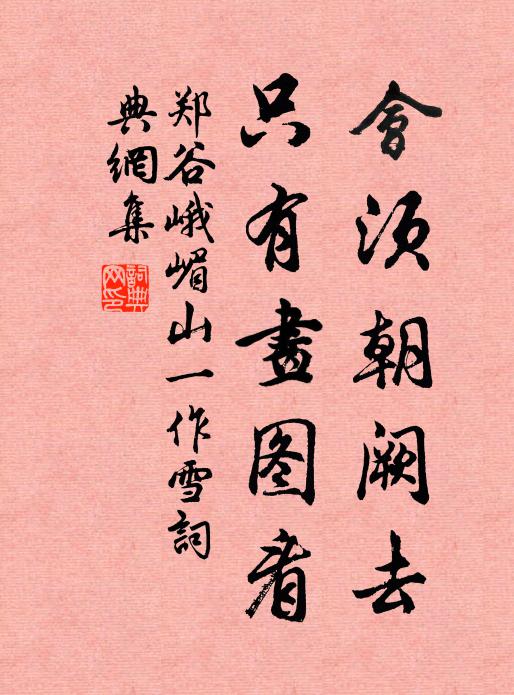 會須朝阙去
只有畫图看
郑谷峨嵋山一作雪詞
典網集
詞典網印